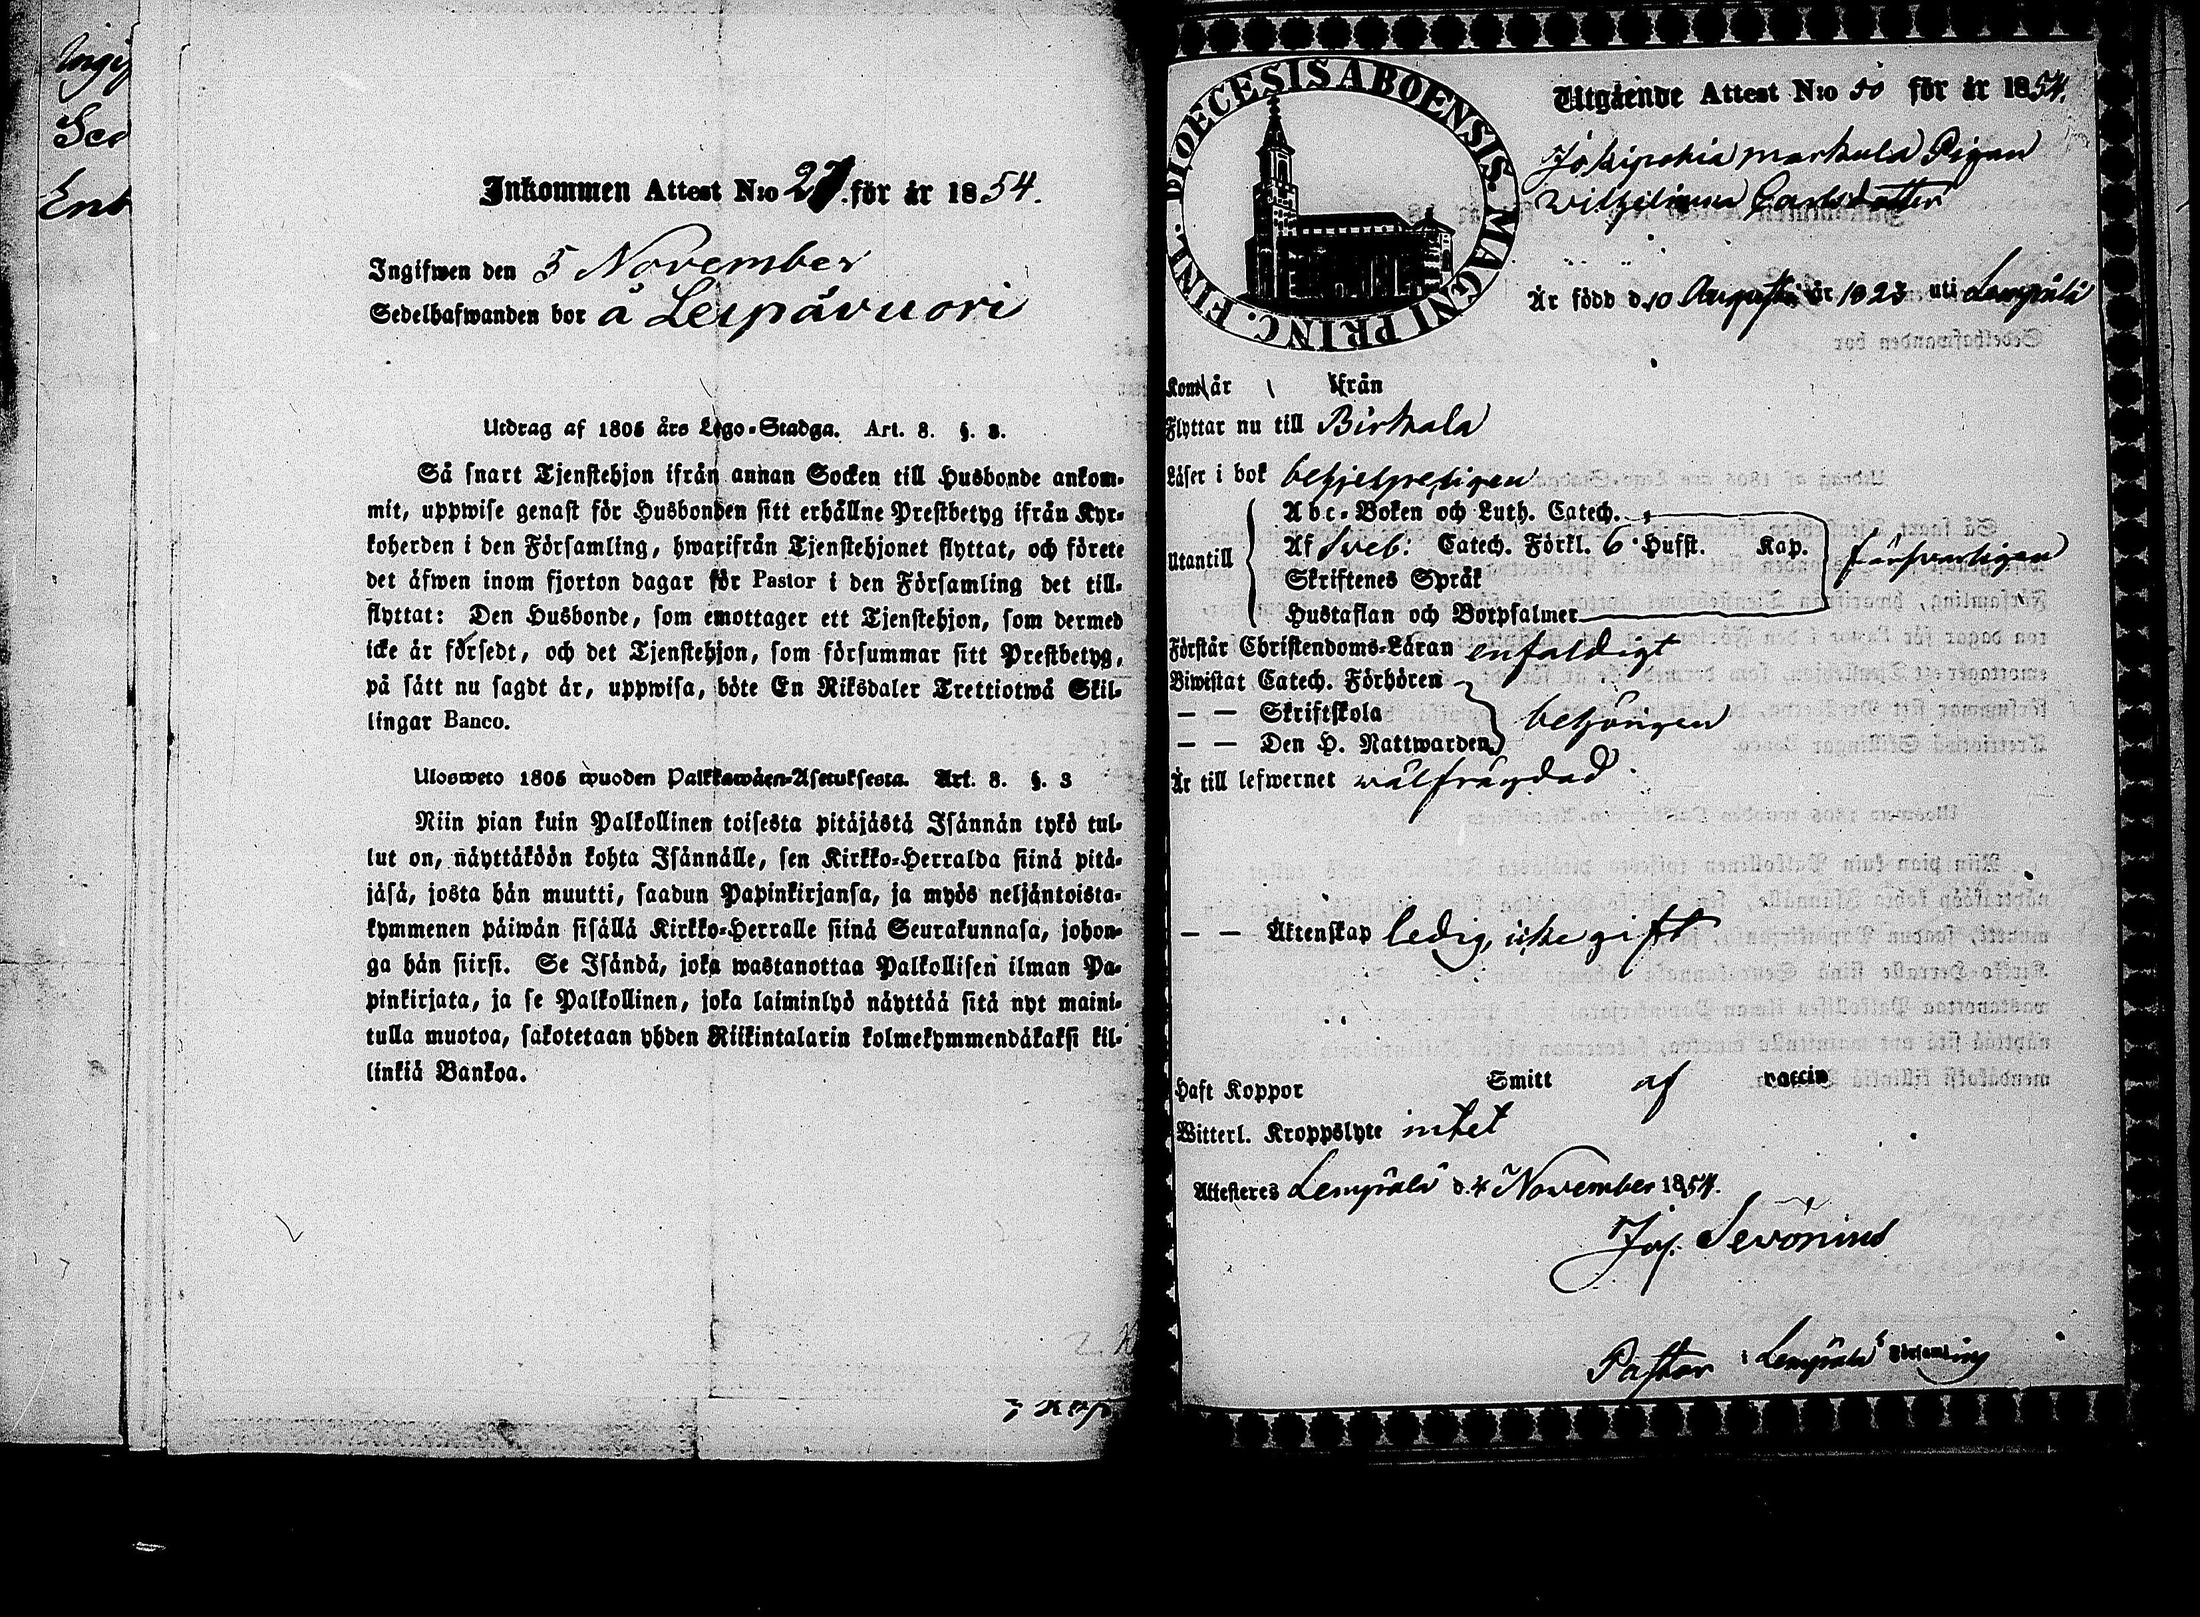 Ingif
Sed
Ent
Inkommen Attest N:o 27. för år 1854.
Ingifwen den 5 November
Sedelhafwanden bor å Leipävuori
Utdrag af 1805 års Lego-Stadga. Art. 8. §. 3.
Så snart Tjenstehjon ifrån annan Socken till Husbonde ankom-
mit, uppwise genast för Husbonden sitt erhållne Prestbetyg ifrån Kyr-
koherden i den Församling, hwarifrån Tjenstehjonet flyttat, och förete
det äfwen inom fjorton dagar för Pastor i den Församling det till-
flyttat: Den Husbonde, som emottager ett Tjenstehjon, som dermed
icke är försedt, och det Tjenstehjon, som försummar sitt Prestbetyg,
på sätt nu sagdt är, uppwisa, böte En Riksdaler Trettiotwå Skil-
lingar Banco.
Ulosweto 1805 wuoden Palkkawäen-Asetuksesta. Art. 8. §. 3
Niin pian kuin Palkollinen toisesta pitäjästä Isännän tykö tul-
lut on, näyttäköön kohta Isännälle, sen Kirkko-Herralda siinä pitä-
jäsä, josta hän muutti, saadun Papinkirjansa, ja myös neljäntoista-
kymmenen päiwän sisällä Kirkko-Herralle siinä Seurakunnasa, johon-
ga hän siirsi. Se Isändä, joka wastanottaa Palkollisen ilman Pa-
pinkirjata, ja se Palkollinen, joka laiminlyö näyttää sitä nyt maini-
tulla muotoa, sakotetaan yhden Riikintalarin kolmekymmendäkaksi kil-
linkiä Bankoa.
3 Kop
DIOECESIS ABOENSIS. MAGNI PRINC. FINL.
Utgående Attest N:o 50 för år 1854.
Jokipohia markula Pigan
Wilhelmina Carlsdotter
Är född d. 10 Augusti år 1823 uti Lempälä
Kom år ifrån
Flyttar nu till Birkala
Läser i bok behjelpeligen
Utantill
Abc-Boken och Luth. Catech.
Af Sveb: Catech. Förkl. 6 Hufst. Kap. försvarligen
Skriftenes Språk
Hustaflan och Botpsalmer
Förstår Christendoms-Läran enfaldigt
Biwistat Catech. Förhören
— — Skriftskola behörigen
— — Den H. Nattwarden
Är till lefwernet wälfrägdad
— — Äktenskap ledig, icke gift
Haft Koppor Smitt af vaccin
Witterl. Kroppslyte intet
Attesteres Lempälä d. 4 November 1854.
Jos. Sevonius
Pastor i Lempälä Församling